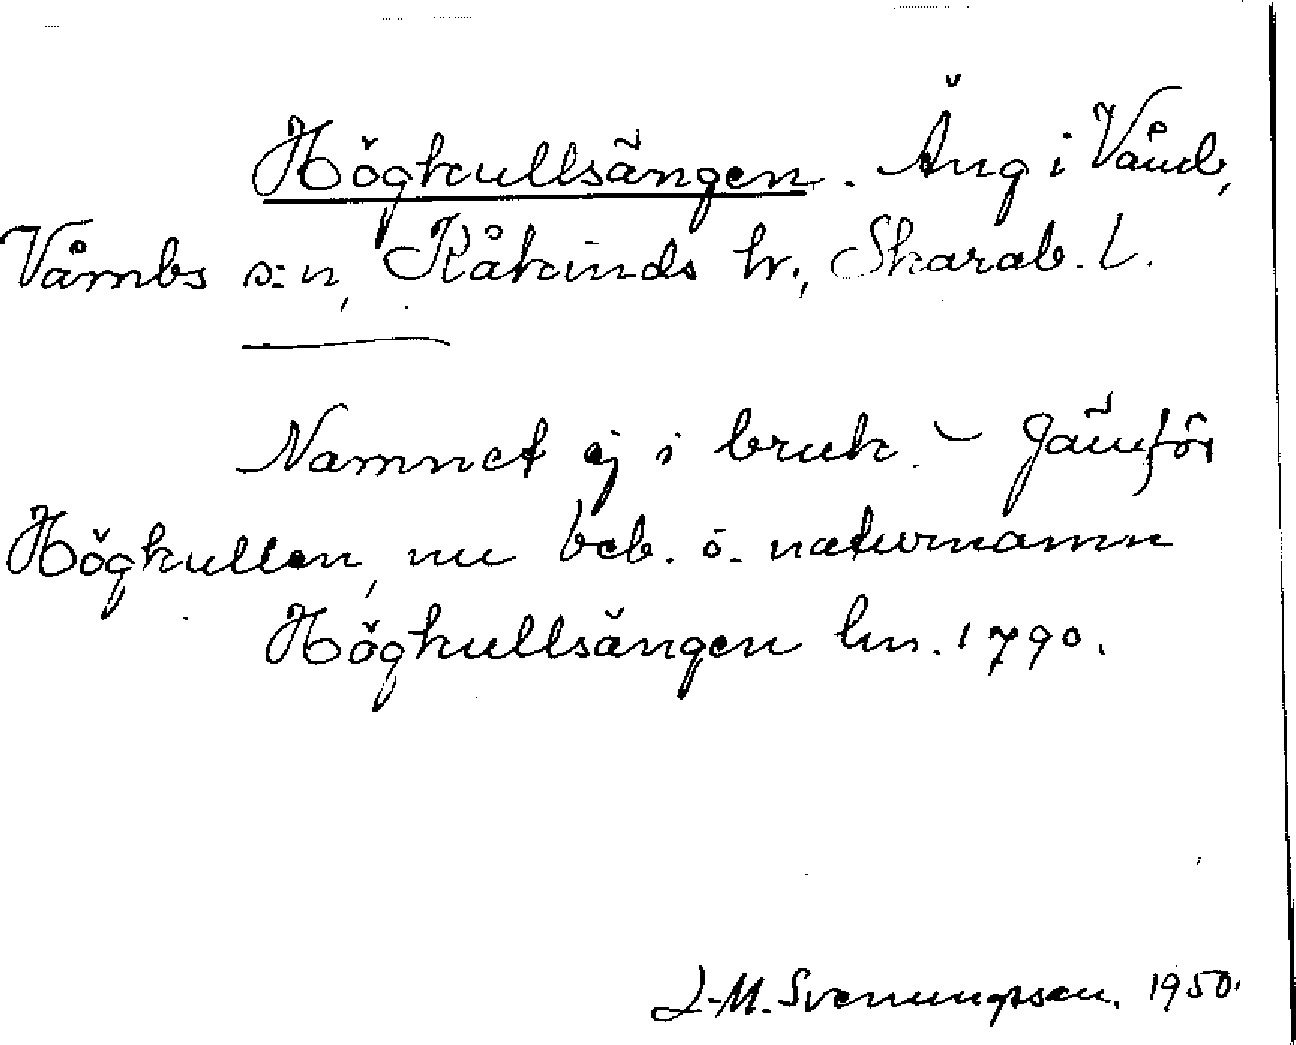 Högkullsängen. Äng i Våmb,
Våmbs s:n, Kåkinds hr., Skarab. l.
Namnet ej i bruk. - Jämför
Högkullen, nu beb. o. naturnamn
Högkullsängen lm. 1790.
J-M. Svenungsson. 1950.